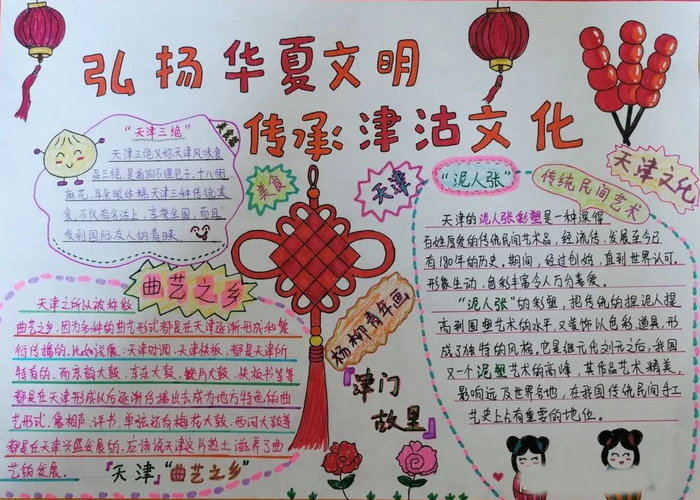 弘扬华夏文明
传承津沽文化
"天津三绝"
美食篇
天津三绝又称天津风味食
品三绝,是狗不理包子、十八街
麻花、耳朵眼炸糕天津三种传统美
食,不仅有名沽上,享誉全国,而且
受到国际友人的青睐
美食
天津
"泥人张"
传统民间艺术
天津文化
天津的泥人张彩塑是一种深得
百姓喜爱的传统民间艺术品,经流传、发展至今已
有180年的历史。期间,经过创始,直到世界认可。
形象生动,色彩丰富令人万分喜爱。
"泥人张"的彩塑,把传统的捏泥人提
高到圆塑艺术的水平,又装饰以色彩、道具,形
成了独特的风格。它是继元代刘元之后,我国
又一个泥塑艺术的高峰,其作品艺术精美,
影响远及世界各地,在我国传统民间手工
艺史上占有重要的地位。
曲艺之乡
天津之所以被称做
曲艺之乡,因为多种的曲艺形式都是在天津逐渐形成和繁
衍传播的。比如说像:天津时调、天津快板,都是天津所
特有的。而京韵大鼓、京东大鼓、铁片大鼓、快板书等等
都是在天津形成以后逐渐传播出去成为地方特色的曲
艺形式。像相声、评书、单弦还有梅花大鼓、西河大鼓等
都是在天津兴盛发展的。应该说天津这片热土滋养了曲
艺的发展。
『天津』"曲艺之乡"
杨柳青年画
『津门
故里』